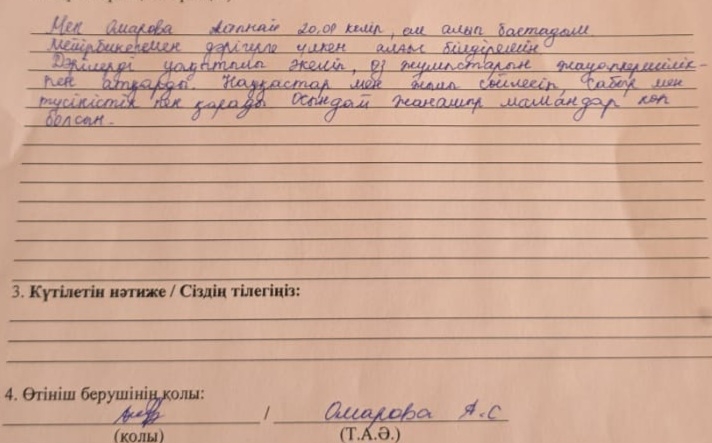 Мен Омарова 20.08 келіп, ем алып бастадым
Мейірбикемен дәрігерге үлкен алғыс білдіремін
Дәрілерді уақытылы әкеліп, өз жұмыстарын жауапкершілік-
пен атқарды. Науқастар мен жылы сөйлесіп, сабыр мен
түсікістік пен қарады Осындай жанашыр мамандар көп
болсын.
3. Күтілетін нәтиже / Сіздің тілегіңіз:
4. Өтініш берушінің қолы:
/ Омарова А.С
(қолы) (Т.А.Ә.)